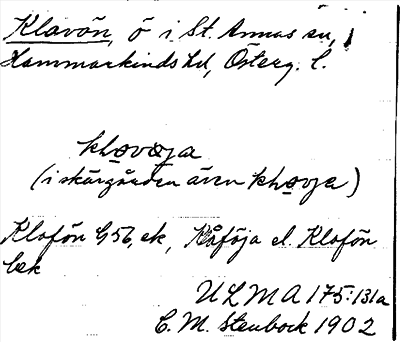 Klavön, ö i St. Annas sn,
Hammarkinds hd, Österg. l.
khovoja
(i skärgården även khovja)
Klofön G56, ek, Klåföja el. Klofön
bek
ULMA 175:131a
C. M. Stenbock 1902